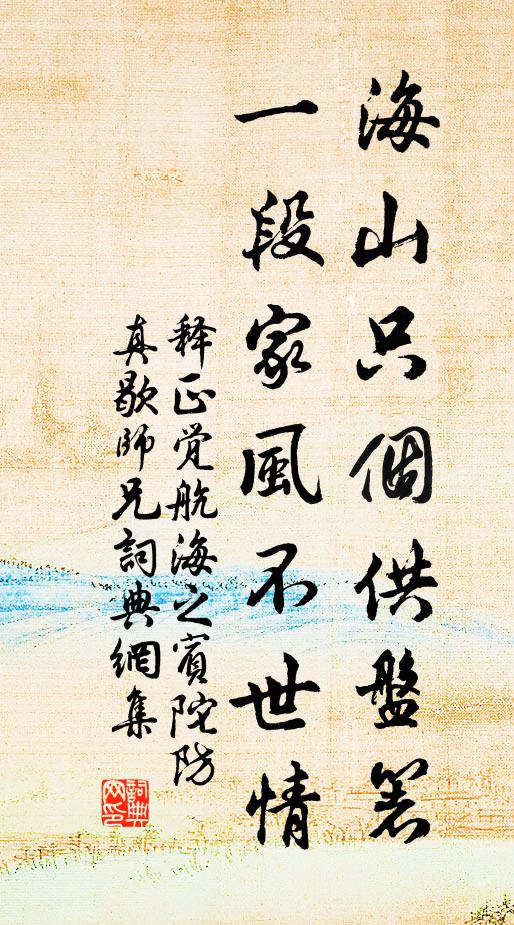 海山只個供盤箸
一段家風不世情
释正觉航海之賓陀防
真歇師兄詞典網集
詞典
网印